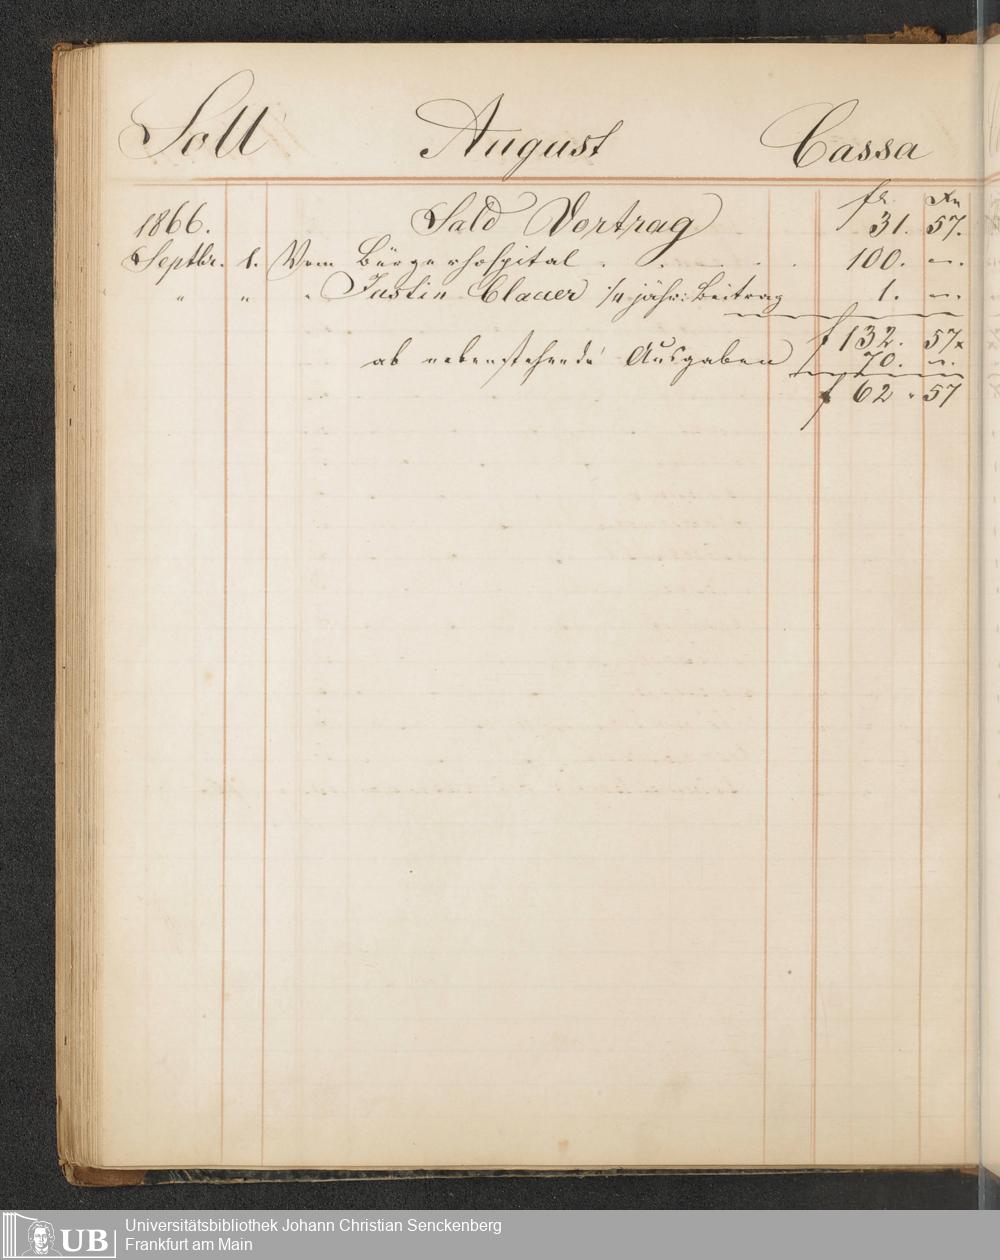 Soll August Cassa
fr. Xr
1866. Sald Vortrag 31. 57.
Septbr. 1. Vom Bürgerhospital . . . . . 100. —.
" " " Justin Clauer 1/4 jähr: Beitrag 1. —.
f 132. 57x
ab nebenstehende Ausgaben 70. —.
f 62 " 57
UB Universitätsbibliothek Johann Christian Senckenberg
Frankfurt am Main